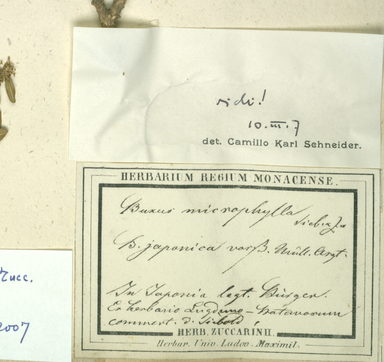 vidi!
10.III.7
det. Camillo Karl Schneider.
HERBARIUM REGIUM MONACENSE.
Buxus microphylla Sieb. & Zu
β. japonica Müll. Argt.
In Japonia legt. Bürger.
Ex herbario Lugduno-Batavorum
comment. d. Siebold
HERB. ZUCCARINII.
Herbar. Univ. Ludov. Maximil.
Zucc.
2007